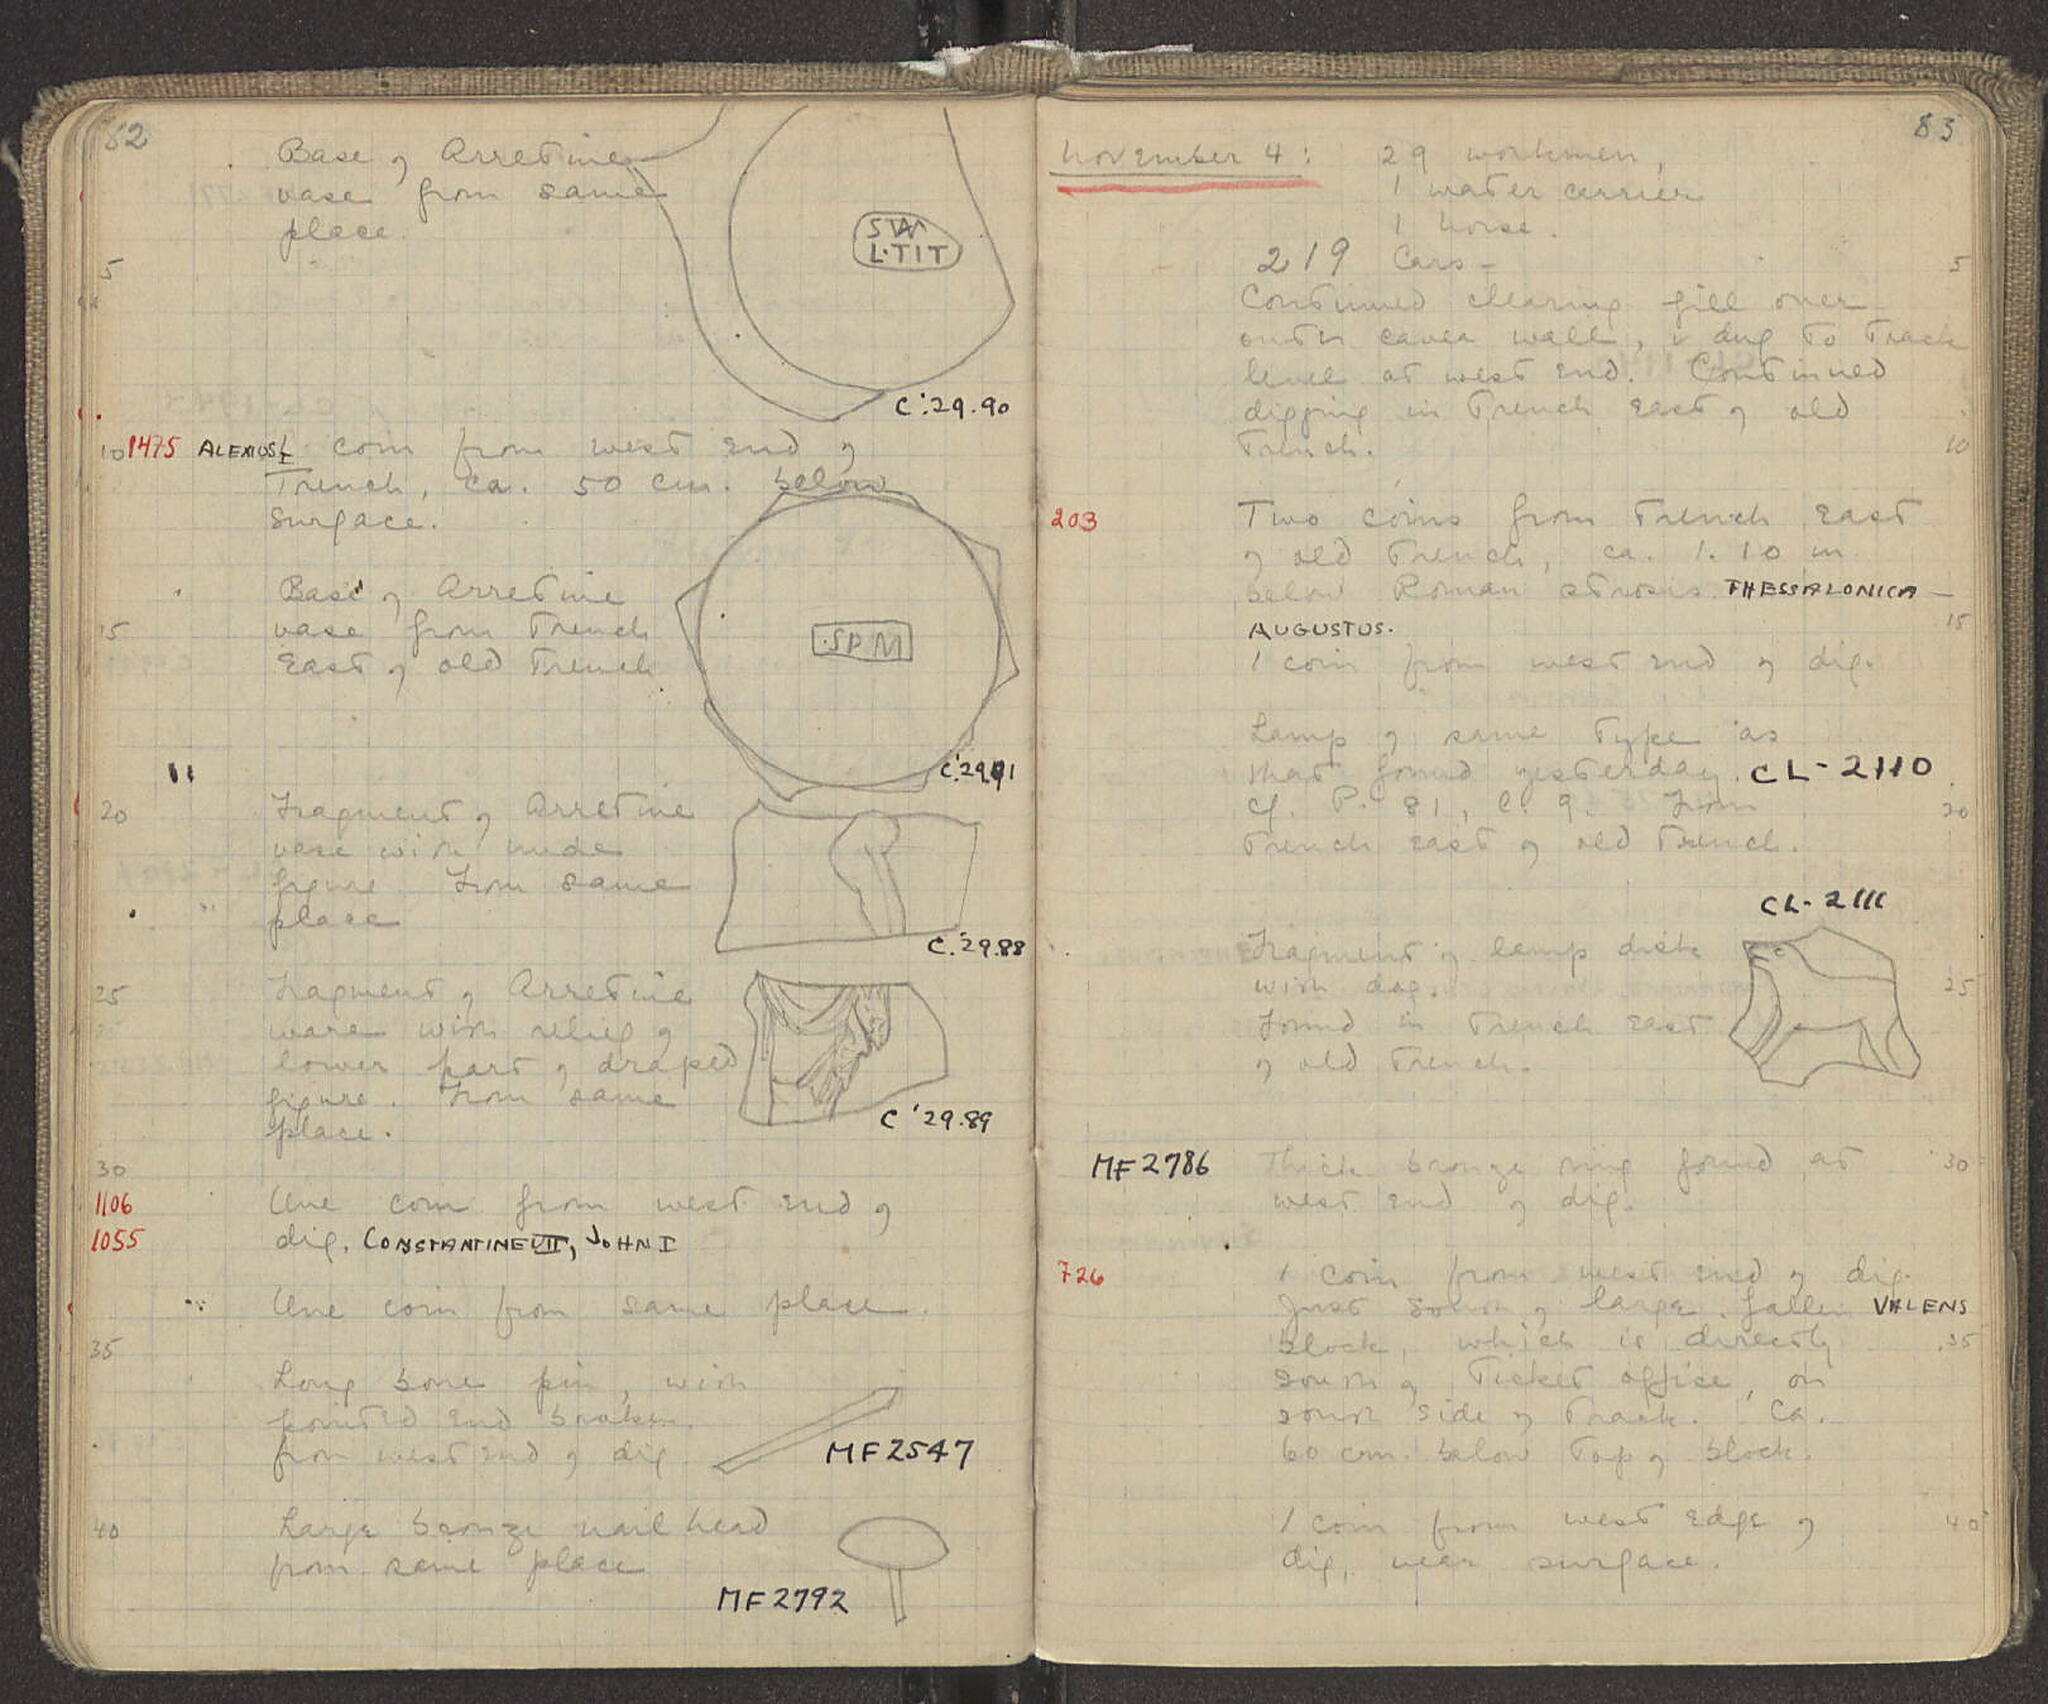 82
Base of Arretine
vase from same
place.
SAM
L·TIT
5
C:29.90
10 1475 ALEXIUS I coin from west end of
Trench, ca. 50 cm. below
surface.
Base of Arretine
15 vase from Trench
East of old Trench
·SPM
C:29.91
"
20 Fragment of Arretine
vase with nude
figure From same
place
C:29.88
25 Fragment of Arretine
ware with relief of
lower part of draped
figure. From same
place.
C '29.89
30
1106 One coin from west end of
1055 dig. CONSTANTINE VII, JOHN I
One coin from same place.
35
Long bone pin, with
pointed end broken
from west end of dig
MF 2547
40 Large bronze nail head
from same place
MF 2792
83
November 4: 29 workmen,
1 water carrier
1 horse.
219 Cars - 5
Continued clearing fill over
outer cavea wall, & dug to track
level at west end. Continued
digging in Trench East of old
Trench. 10
203 Two coins from Trench East
of old Trench, ca. 1.10 m
below Roman strosis. THESSALONICA —
AUGUSTUS. 15
1 coin from west end of dig.
Lamp of same type as
that found yesterday. CL-2110
cf. P. 81, l. 9. From 20
Trench East of old Trench.
CL-2111
Fragment of lamp disk
with dog. 25
Found in Trench East
of old Trench.
MF 2786 Thick bronze ring found at 30
west end of dig.
726 1 coin from west end of dig.
Just south of large fallen VALENS
block, which is directly 35
south of Ticket office, on
south side of Track. Ca.
60 cm. below top of block.
1 coin from west edge of 40
dig, near surface.